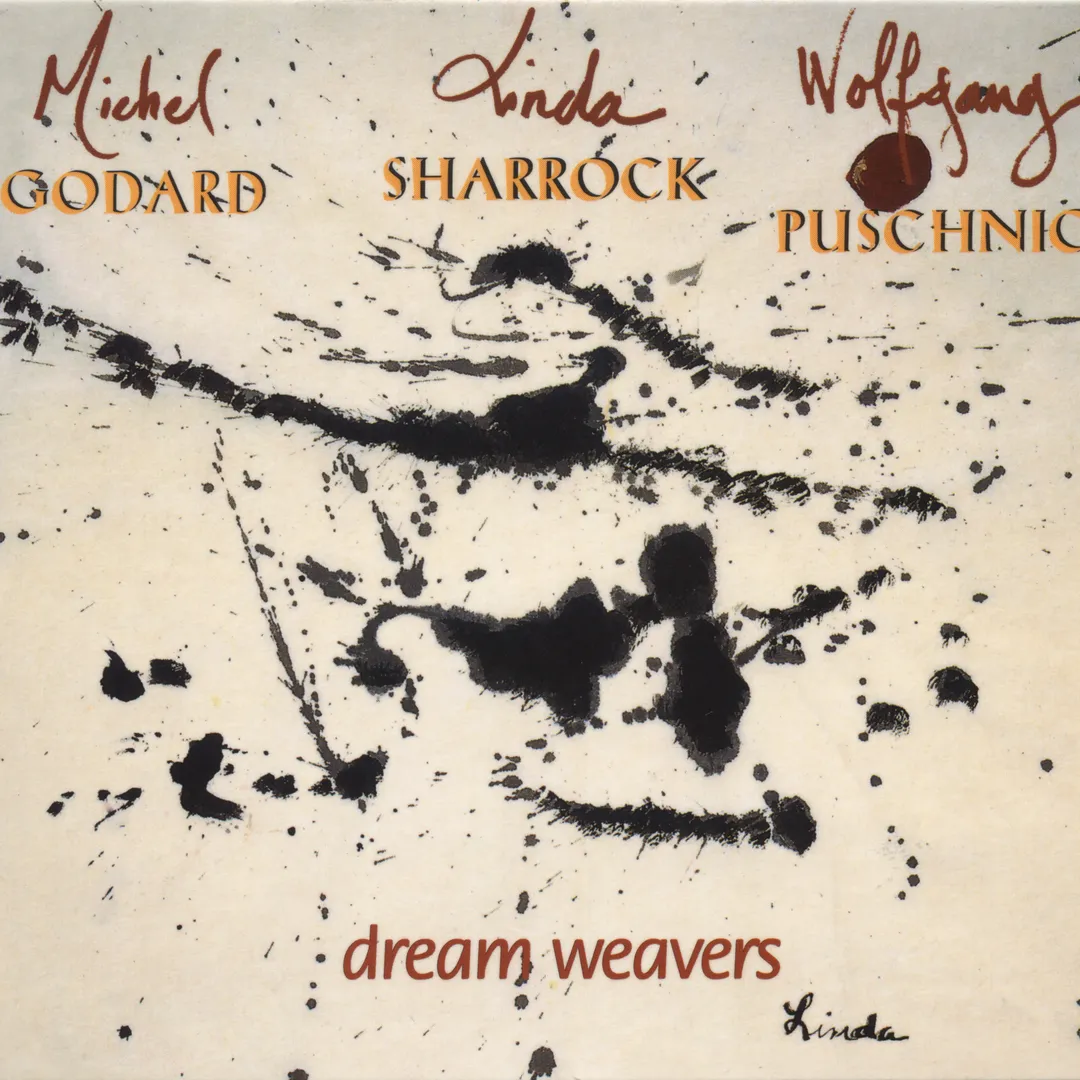 Michel Linda Wolfgang
GODARD SHARROCK PUSCHNIG
dream weavers
Linda